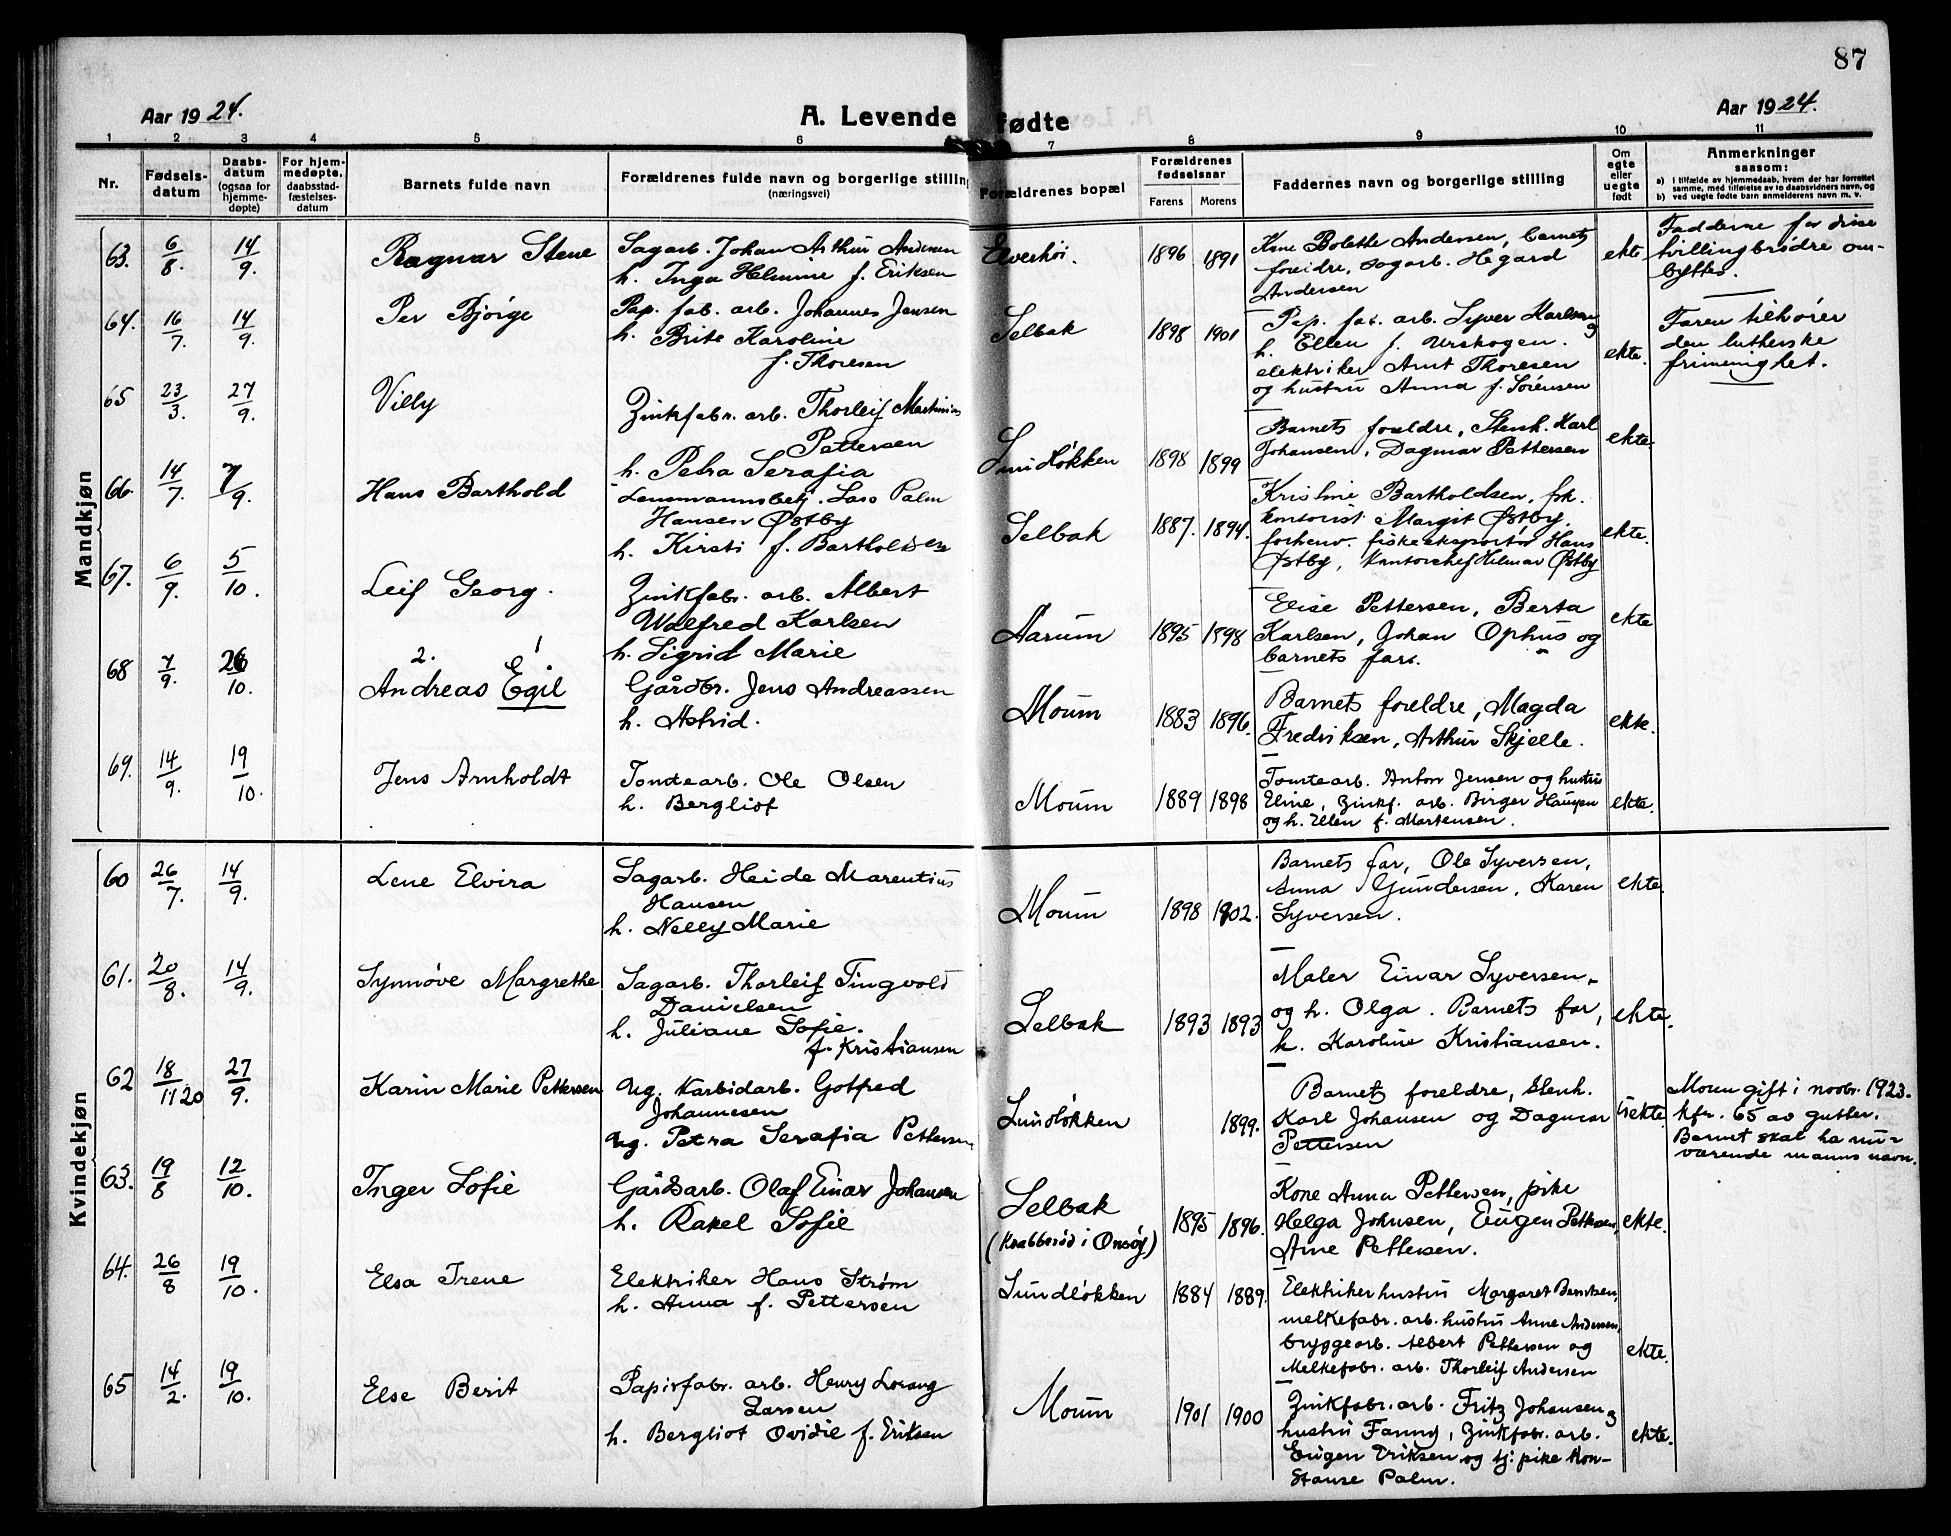 87
Aar 1924.
A. Levende fødte
Aar 1924.
1 2 3 4 5 6 7 8 9 10 11
Nr.
Fødsels-
datum
Daabs-
datum
(ogsaa for
hjemme-
døpte)
For hjem-
medøpte,
daabsstad-
fæstelses-
datum
Barnets fulde navn
Forældrenes fulde navn og borgerlige stilling
(næringsvei)
Forældrenes bopæl
Forældrenes
fødselsaar
Farens Morens
Faddernes navn og borgerlige stilling
Om
egte
eller
uegte
født
Anmerkninger
saasom:
a) i tilfælde av hjemmedaab, hvem der har forrettet
samme, med tilføielse av to daabsvidners navn, og
b) ved uegte fødte barn anmelderens navn m. v.
Mandkjøn
63. 6/8. 14/9. Ragnar Stene
Sagarb. Johan Arthur Andersen
h. Inga Helmine f. Eriksen
Elverhöi. 1896 1891
Kone Bolette Andersen, barnets
foreldre, sagarb. Hegard
Andersen
ekte
Fadderne for disse
tvillingbrödre om-
byttes.
64. 16/7. 14/9. Per Bjørge
Pap. fab. arb. Johannes Jensen
h. Brite Karoline
f. Thoresen
Selbak 1898 1901
Pap. fab. arb. Syver Karlsen og
h. Ellen f. Urskogen.
elektriker Arnt Thoresen
og hustru Anna f. Sörensen
ekte.
Faren tilhörer
den lutherske
frimenighet.
65 23/3. 27/9. Villy
Zinkfabr. arb. Thorleif Martinius
Pettersen
h. Petra Serafia
Lundløkken 1898 1899
Barnets foreldre, Stenh. Karl
Johansen, Dagmar Pettersen
ekte.
66. 14/7. 7/9. Hans Barthold
Lensmannsbetj. Lars Palm
Hansen Østby
h. Kirsti f. Bartholdsen
Selbak 1887. 1894.
Kristine Bartholdsen, frk.
kontorist Margit Østby,
forhenv. fiskeeksportör Hans
Østby, kontorchef Hilmar Østby
ekte.
67. 6/9. 5/10. Leif Georg.
Zinkfabr. arb. Albert
Walfred Karlsen
h. Sigrid Marie
Aarum 1895 1898
Elise Pettersen, Berta
Karlsen, Johan Ophus og
barnets far.
ekte
68 7/9. 26/10. 2. 1
Andreas Egil
Gårdbr. Jens Andreassen
h. Astrid.
Moum 1883 1896.
Barnets foreldre, Magda
Fredriksen, Arthur Skjelle.
ekte.
69. 14/9. 19/10. Jens Arnholdt
Tomtearb. Ole Olsen
h. Bergliot
Moum 1889 1898
Tomtearb. Anton Jensen og hustru
Eline, Zinkf. arb. Birger Hansen
og h. Ellen f. Martensen.
ekte.
Kvindekjøn
60 26/7. 14/9. Lene Elvira
Sagarb. Heide Marentius
Hansen
h. Nelly Marie
Moum 1898 1902.
Barnets far, Ole Syversen,
Anna Gundersen, Karen
Syversen.
ekte.
61. 20/8. 14/9. Synnöve Margrethe
Sagarb. Thorleif Tingvold
Danielsen
h. Juliane Sofie.
f. Kristiansen
Selbak 1893 1893
Maler Einar Syversen
og h. Olga. Barnets far,
h. Karoline Kristiansen.
ekte.
62 18/11 20 27/9. Karin Marie Pettersen
Ug. Karbidarb. Gotfred
Johannesen
Ug. Petra Serafia Pettersen
Lundløkken 1899.
Barnets foreldre, Stenh.
Karl Johansen og Dagmar
Pettersen
uekte
Moren gift i novbr. 1923.
kfr. 65 av gutter.
Barnet skal ha nu-
værende manns navn.
63. 19/8 12/10. Inger Sofie
Gårdsarb. Olaf Einar Johansen
h. Rakel Sofie
Selbak
(Krabberöd i Onsöy) 1895 1896.
Kone Anna Pettersen, pike
Helga Johnsen, Eugen Pettersen,
Arne Pettersen.
ekte.
64. 26/8 19/10. Elsa Irene
Elektriker Hans Ström
h. Anna f. Pettersen
Lundløkken 1884 1889.
Elektriker hustru Margaret Berntsen,
melkefabr. arb. hustru Anne Andersen,
bryggearb. Albert Pettersen og
Melkefabr. arb. Thorleif Andersen
ekte.
65 14/2. 19/10. Else Berit
Papirfabr. arb. Henry Lorang
Larsen
h. Bergliot Ovidie f. Eriksen
Moum 1901 1900
Zinkfabr. arb. Fritz Johansen og
hustru Fanny, Zinkfabr. arb.
Eugen Eriksen og tj. pike Kon-
stanse Palm.
ekte.